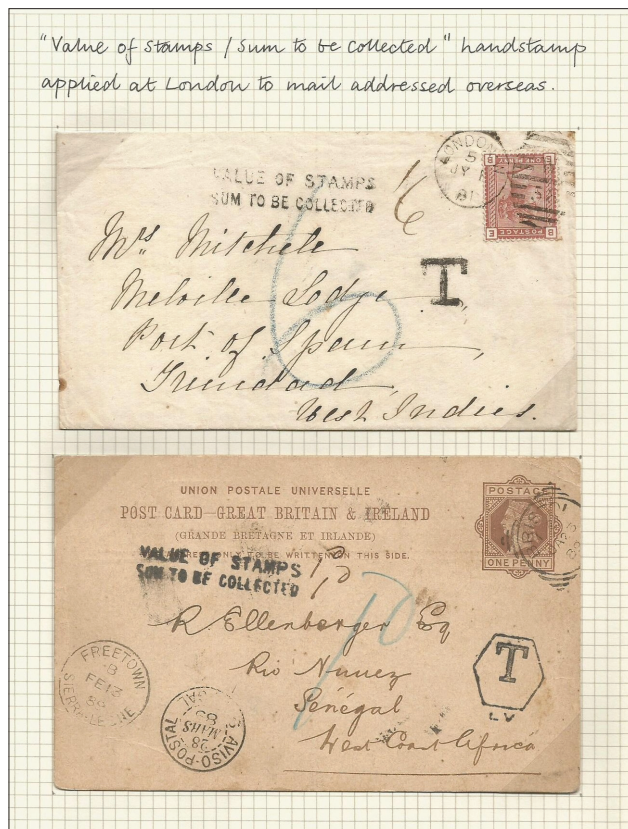 "Value of Stamps / Sum to be Collected" handstamp
applied at London to mail addressed overseas.
LONDON
5
JY
81
POSTAGE
ONE PENNY
VALUE OF STAMPS
SUM TO BE COLLECTED
1/6
T
Mrs Mitchell
Melville Lodge,
Port of Spain,
Trinidad,
West Indies.
UNION POSTALE UNIVERSELLE
POST CARD–GREAT BRITAIN & IRELAND
(GRANDE BRETAGNE ET IRLANDE)
ONLY TO BE WRITTEN ON THIS SIDE.
POSTAGE
ONE PENNY
VALUE OF STAMPS
SUM TO BE COLLECTED
R. Ellenberger Esq
Rio Nunez
Sénégal
West Coast Africa
T
L.V
FREETOWN
B
FE 13
SIERRA LEONE
AVISO-POSTAL
28
MARS